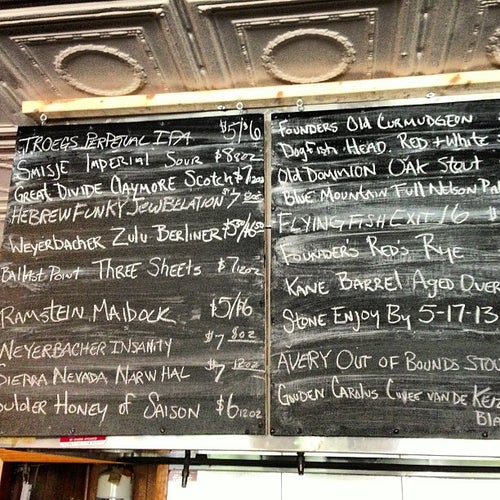 TROEGS PERPETUAL IPA $5/$6
SMISJE IMPERIAL SOUR $8 8oz
GREAT DIVIDE CLAYMORE SCOTCH $7 12oz
HEBREW FUNKY JEWBELATION $7 8oz
WEYERBACHER ZULU BERLINER
BALLAST POINT THREE SHEETS $7 12oz
RAMSTEIN MAIBOCK $5/$6
WEYERBACHER INSANITY $7 8oz
SIERRA NEVADA NARWHAL $7 12oz
OULDER HONEY OF SAISON $6 12oz
FOUNDERS OLD CURMUDGEON
DOGFISH HEAD RED + WHITE
OLD DOMINION OAK STOUT
BLUE MOUNTAIN FULL NELSON PA
FLYING FISH EXIT 16
FOUNDER'S RED'S RYE
KANE BARREL AGED OVER
STONE ENJOY BY 5-17-13
AVERY OUT OF BOUNDS STOU
GOUDEN CAROLUS CUVEE VAN DE KEIZ
BLA